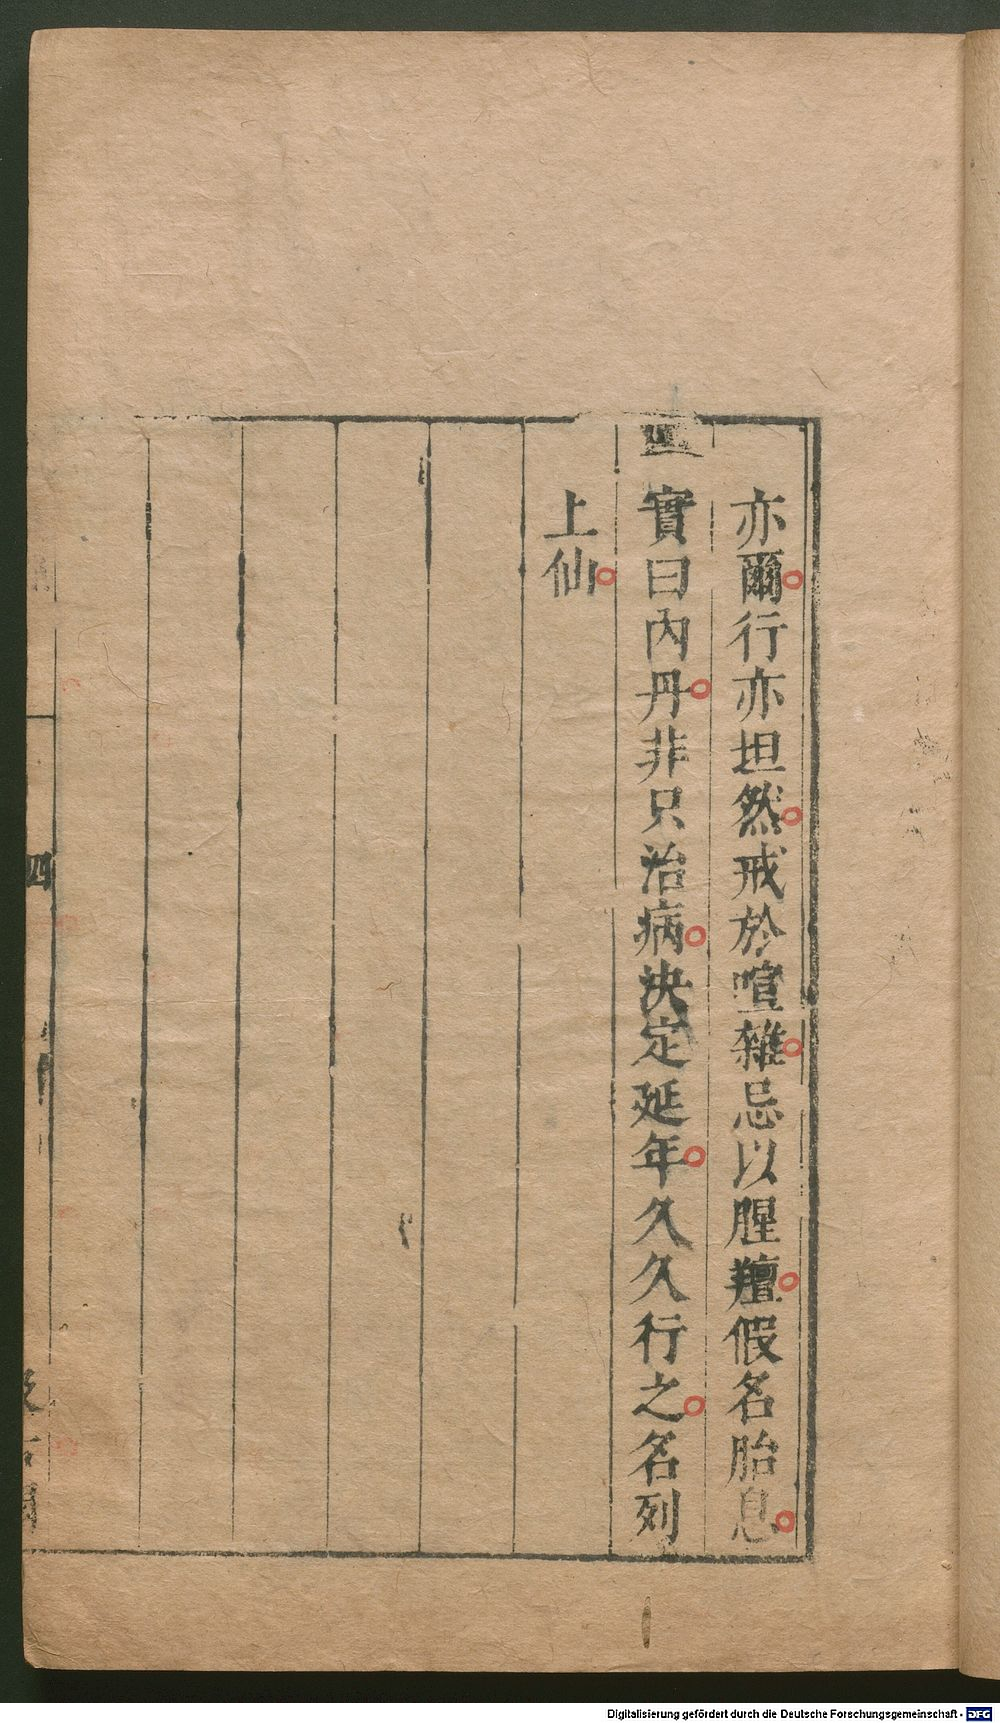 亦爾行亦坦然戒於喧雜忌以腥羶假名胎息
實曰內丹非只治病決定延年久久行之名列
上仙
四
Digitalisierung gefördert durch die Deutsche Forschungsgemeinschaft - DFG